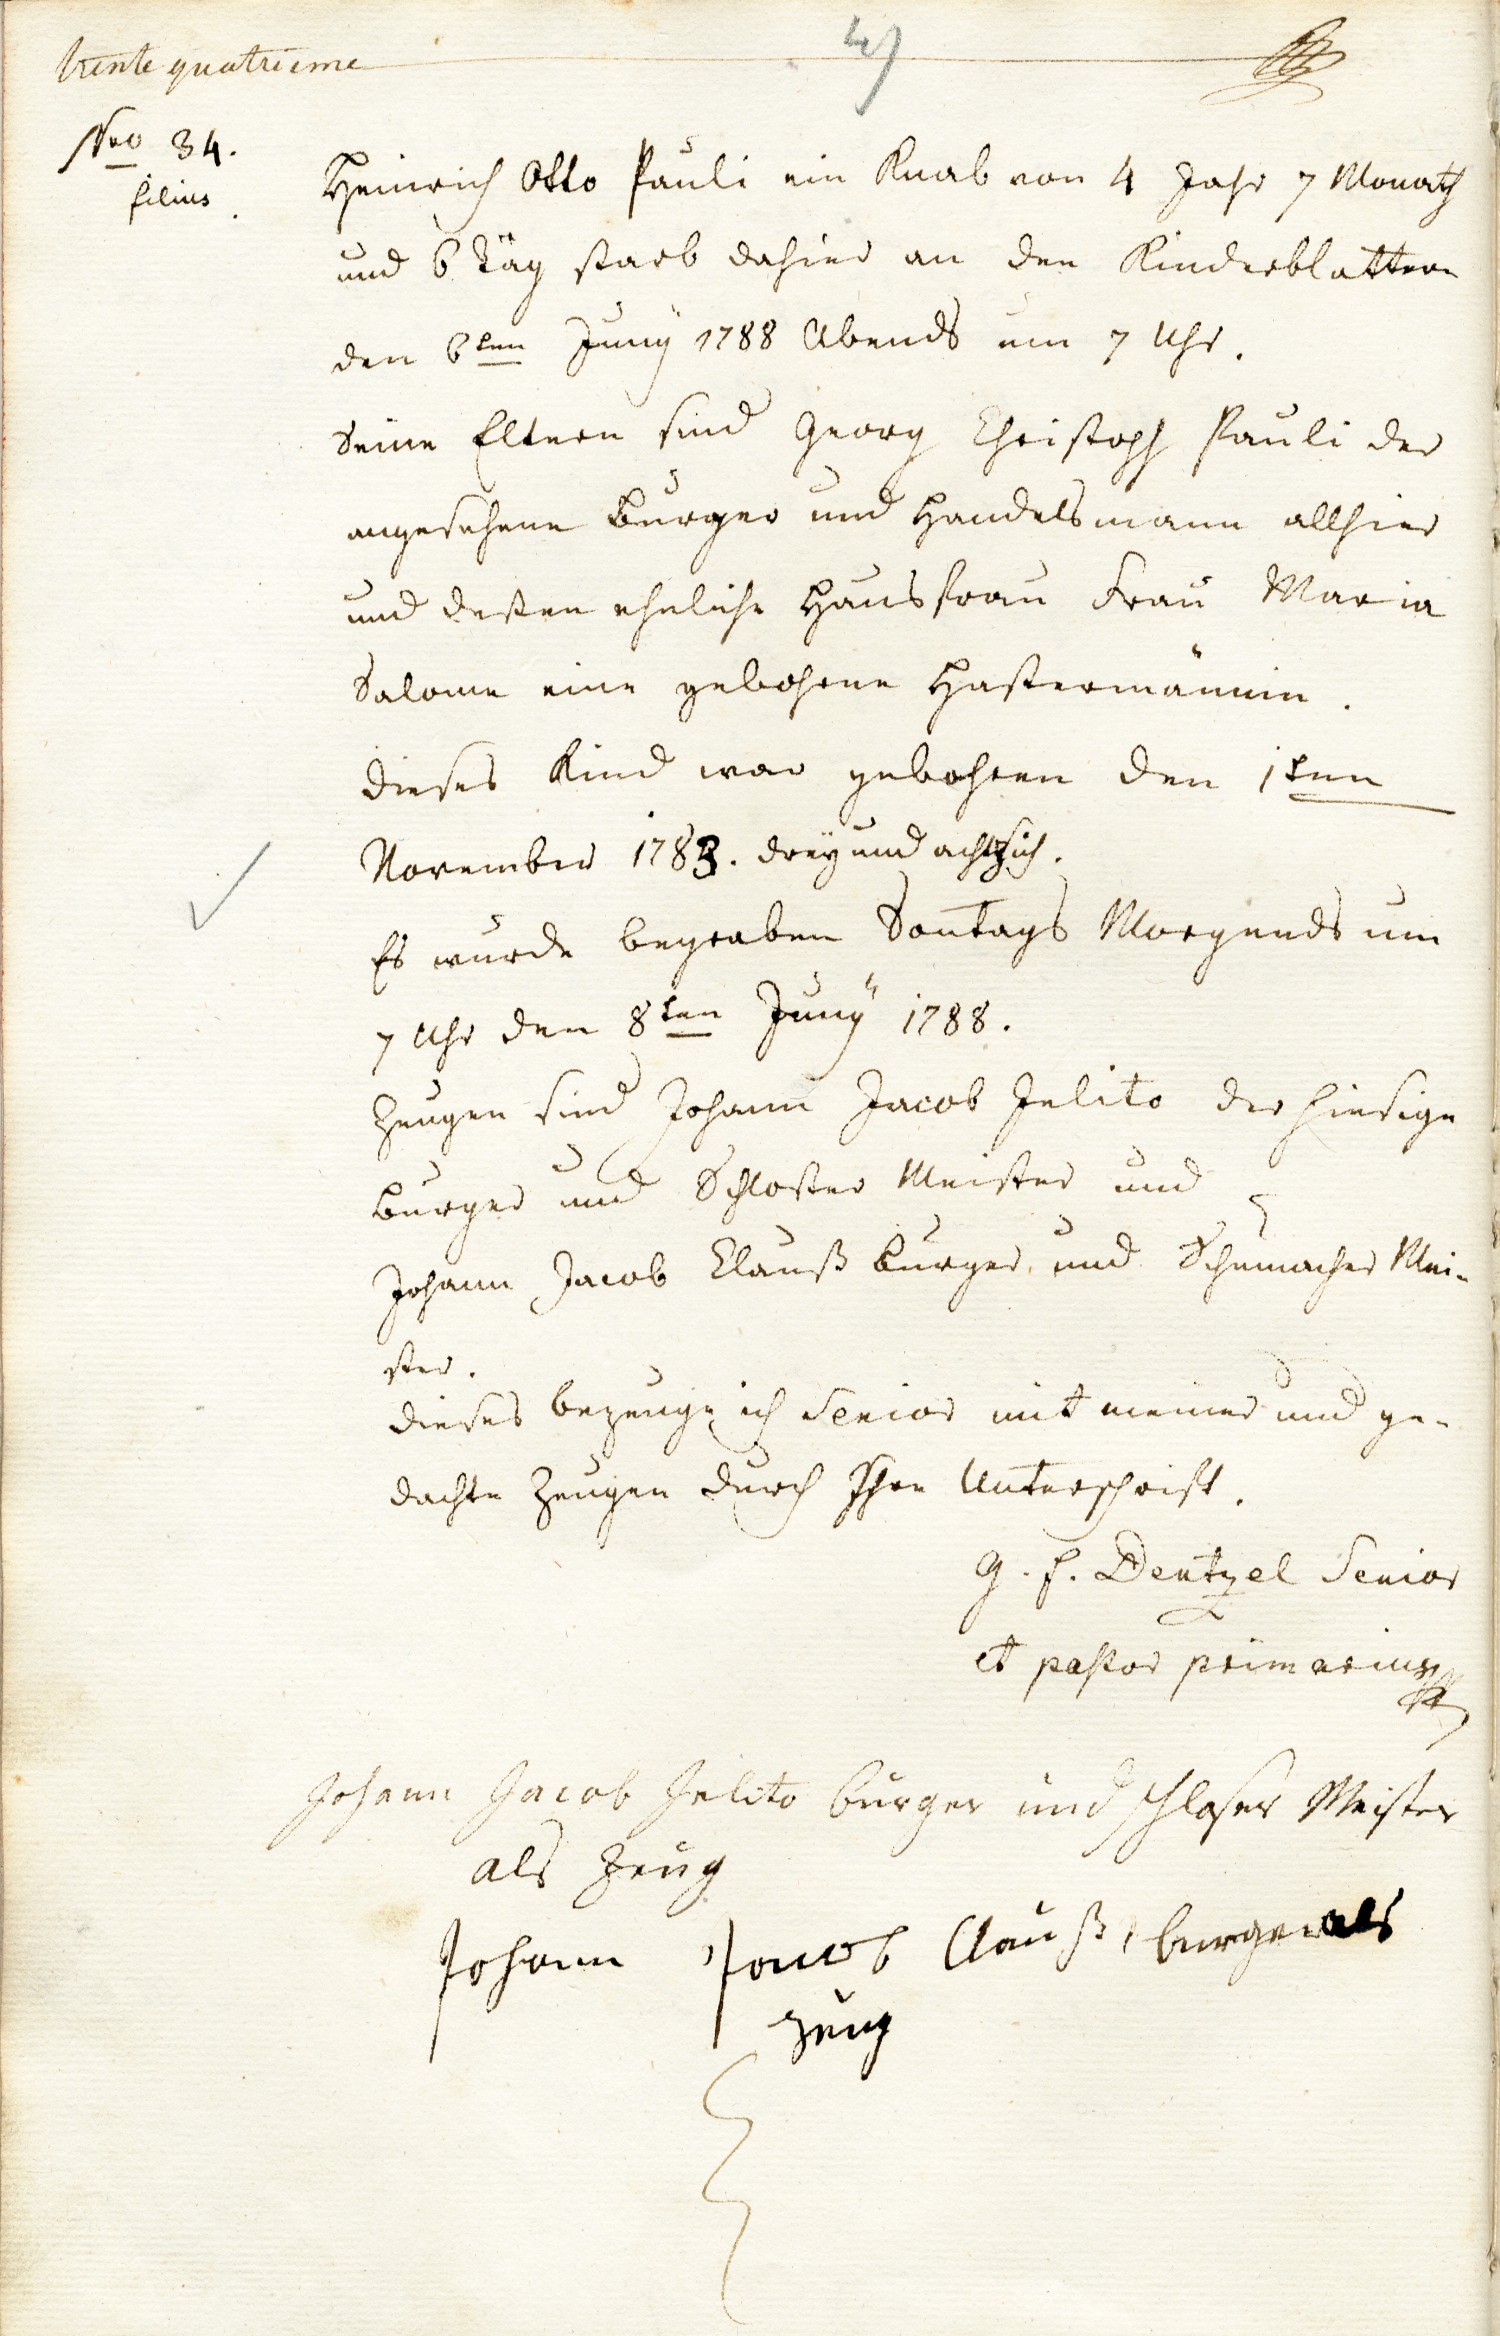 trente quatrieme
Nro 34.
filius.
Heinrich Otto Pauli ein Knab von 4 Jahr 7 Monath
und 6 Täg starb dahier an den Kinderblattern
den 6ten Junÿ 1788 Abends um 7 Uhr.
Seine Eltern sind Georg Christoph Pauli der
angesehene Burger und Handelsmann allhier
und dessen eheliche Hausfrau Frau Maria
Salome eine gebohrne Hastermännin.
dieses Kind war gebohren den 1ten
November 1783. dreÿundachtzich.
Es wurde begraben Sontags Morgends um
7 Uhr den 8ten Junÿ 1788.
Zeugen sind Johann Jacob Jelito der hiesige
Burger und Schlosser Meister und
Johann Jacob Clauß Burger und Schumacher Mei-
ster.
dieses bezeuge ich Senior mit meiner und ge-
dachte Zeugen durch Ihre Unterschrift.
G. F. Dentzel Senior
et pastor primarius
Johann Jacob Jelito burger und schloser Meister
als Zeug
Johann Jacob Clauß burger als
zeug